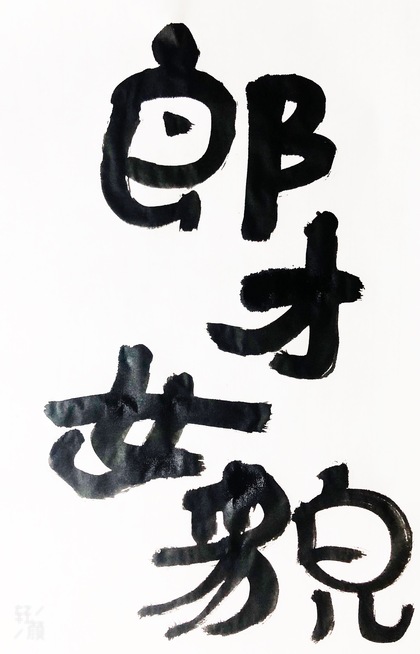 郎才
女貌